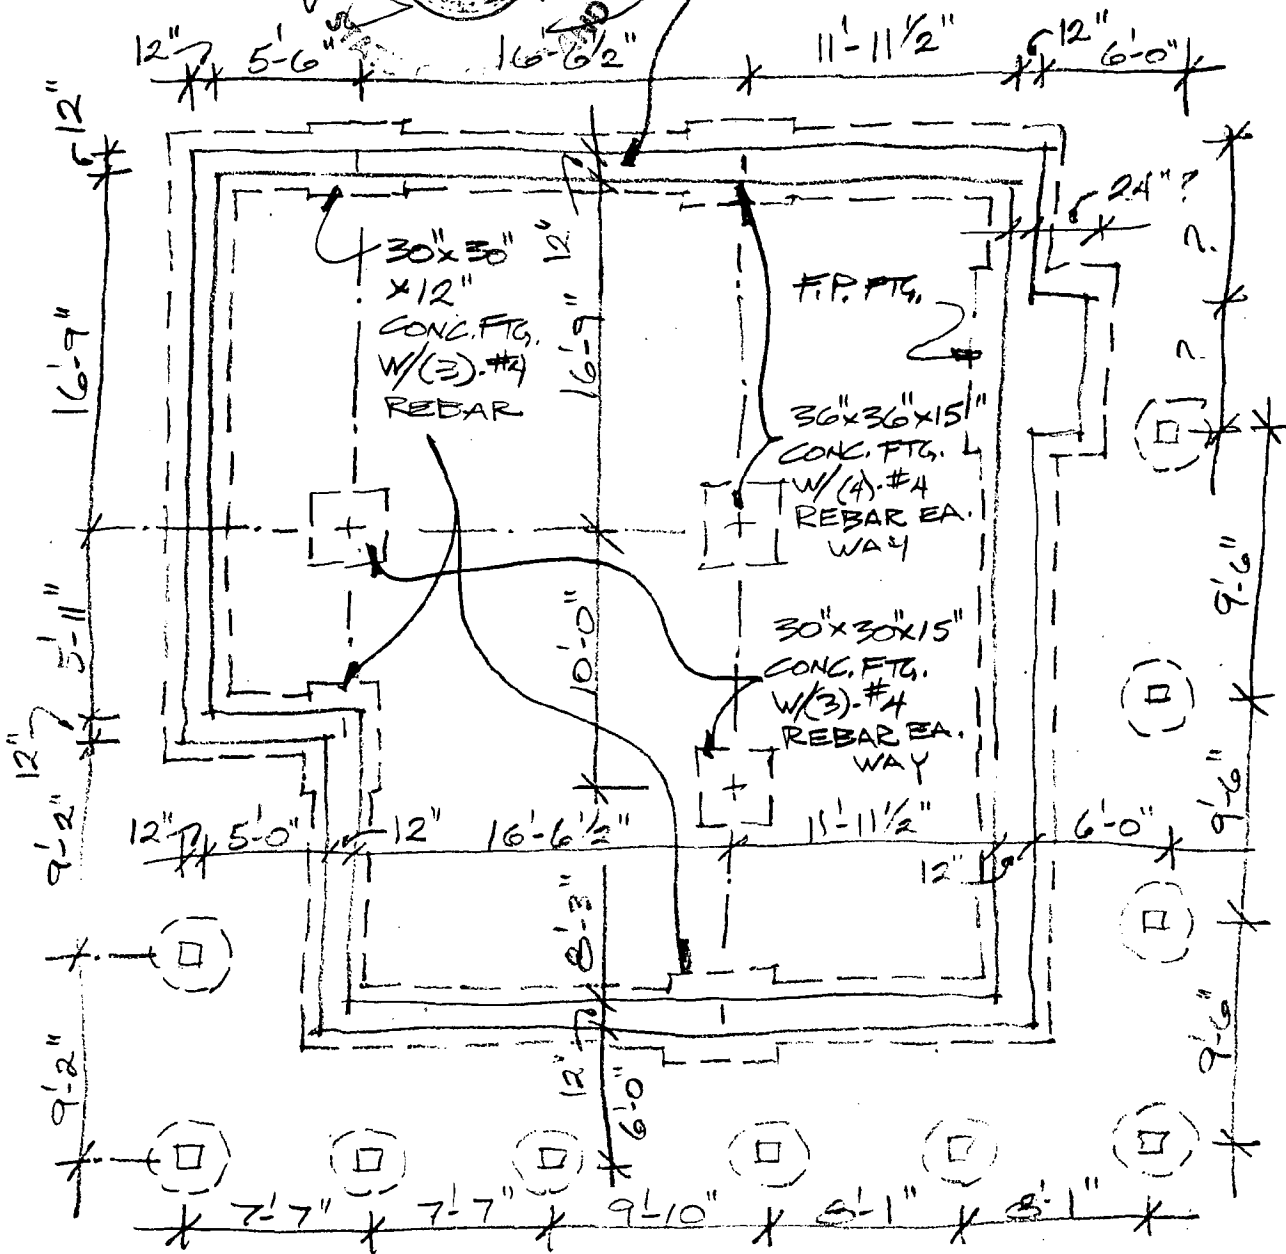 12" 5'-6" 16'-6 1/2" 11'-11 1/2" 12" 6'-0"
12"
24"?
?
30"x30"
x12"
CONC. FTG.
W/(3)-#4
REBAR
12"
16'-9"
16'-9"
F.P. FTG.
?
36"x36"x15"
CONC. FTG.
W/(4)-#4
REBAR EA.
WAY
9'-6"
5'-11"
10'-0"
30"x30"x15"
CONC. FTG.
W/(3)-#4
REBAR EA.
WAY
12"
9'-2"
9'-6"
12" 5'-0" 12" 16'-6 1/2" 11'-11 1/2" 6'-0"
12"
8'-3"
9'-6"
12"
9'-2"
6'-0"
7'-7" 7'-7" 9'-10" 8'-1" 8'-1"